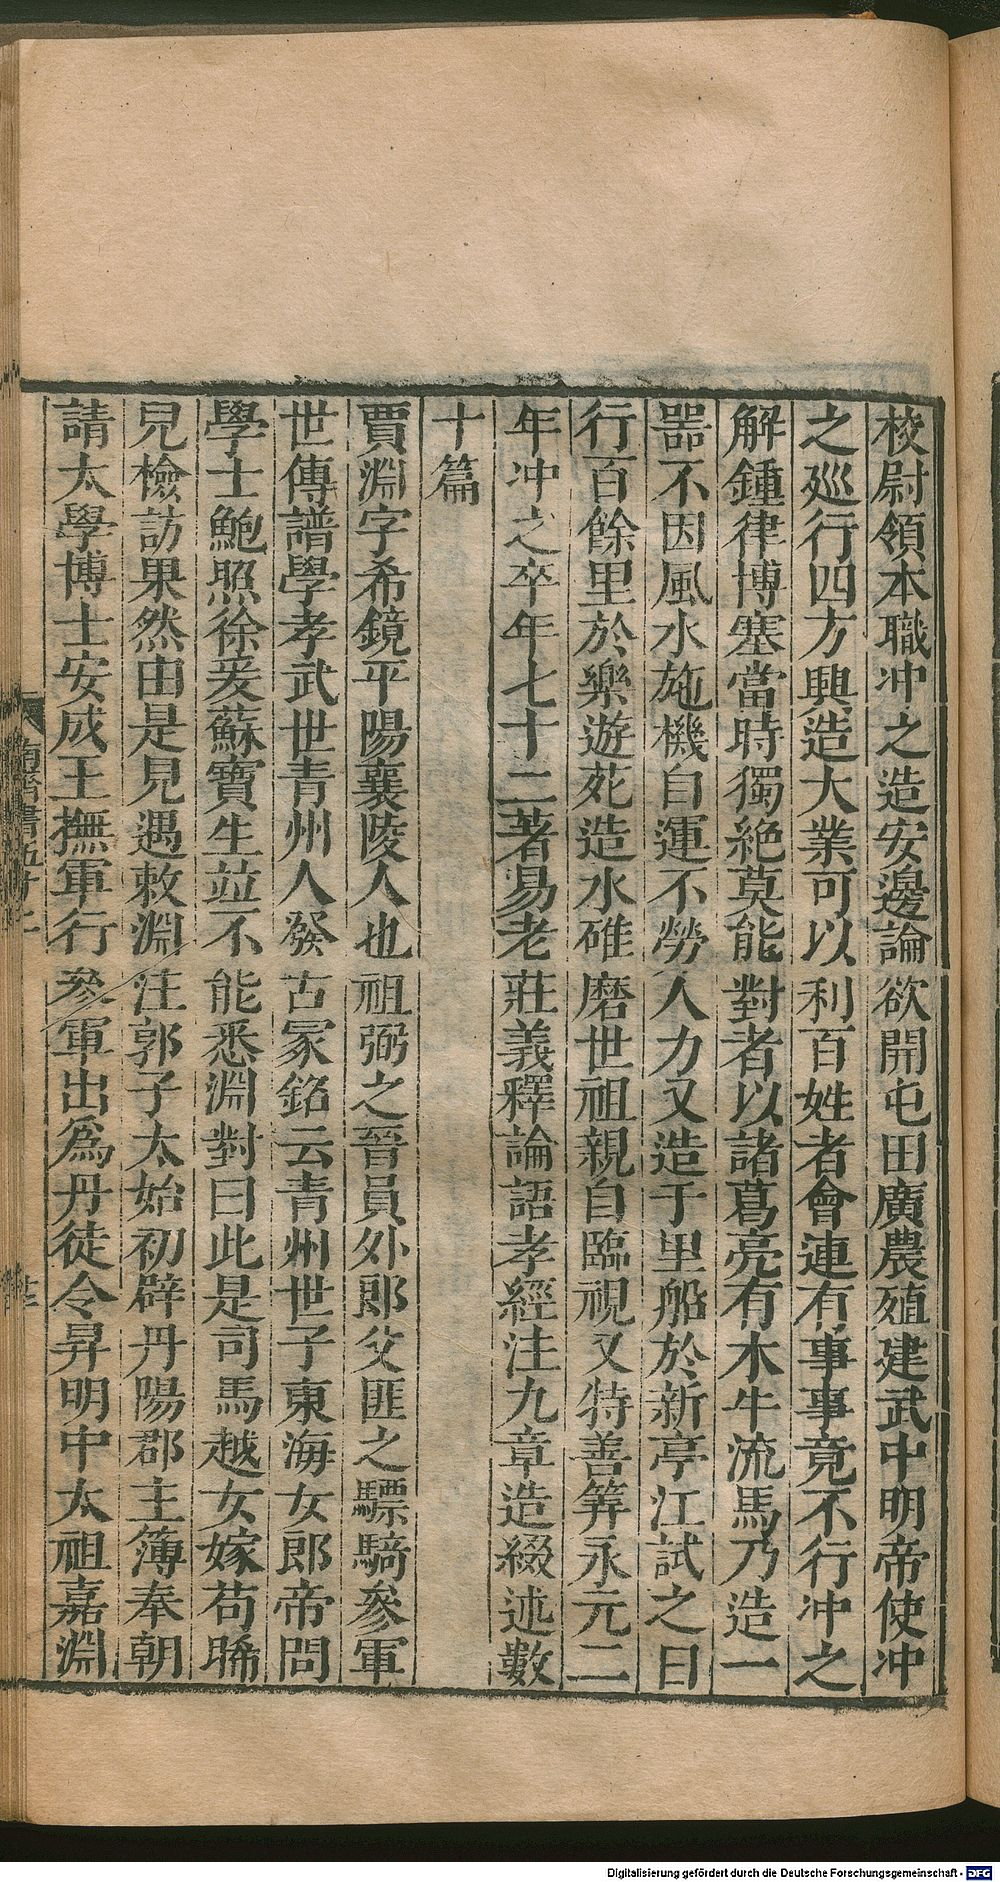 校尉領本職冲之造安邊論欲開屯田廣農殖建武中明帝使冲
之廵行四方興造大業可以利百姓者會連有事事竟不行冲之
解鍾律博塞當時獨絶莫能對者以諸葛亮有木牛流馬乃造一
器不因風水施機自運不勞人力又造千里船於新亭江試之日
行百餘里於樂遊苑造水碓磨世祖親自臨視又特善筭永元二
年冲之卒年七十二著易老莊義釋論語孝經注九章造綴述數
十篇
賈淵字希鏡平陽襄陵人也祖弼之晉員外郎父匪之驃騎參軍
世傳譜學孝武世青州人發古冢銘云青州世子東海女郎帝問
學士鮑照徐爰蘇寶生並不能悉淵對曰此是司馬越女嫁苟晞
兒檢訪果然由是見遇敕淵注郭子太始初辟丹陽郡主簿奉朝
請太學博士安成王撫軍行參軍出爲丹徒令昇明中太祖嘉淵
南齊書五十二
Digitalisierung gefördert durch die Deutsche Forschungsgemeinschaft - DFG